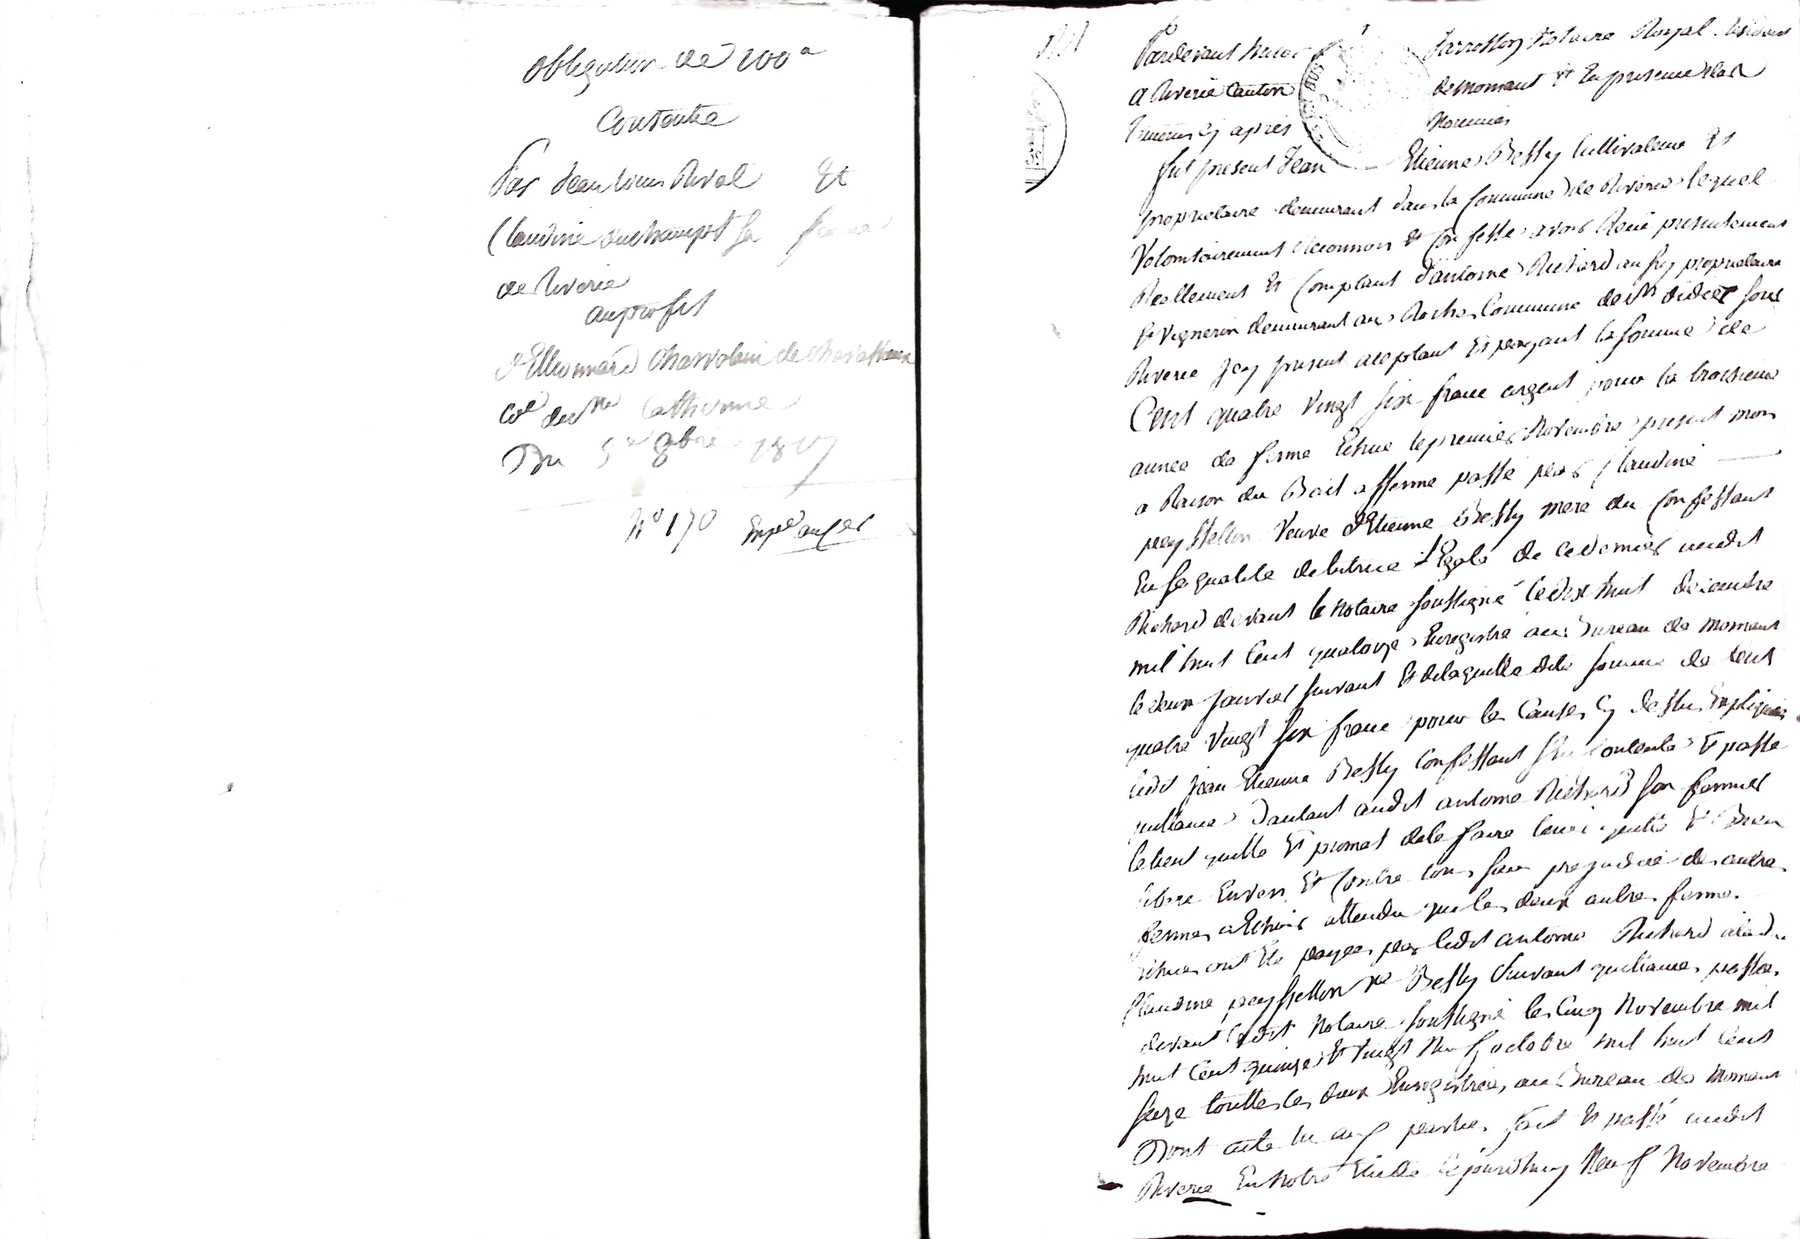 obligation de 200
Consentie
Par Jean Rival Et
Claudine duchampt Sa femme
de Riverie
au profit
d'Elleonnard Charvolin de
Coe de Ste Catherine
Du 5 8bre
N° 170
Pardevant Jarrosson Notaire Royal résident
a Riverie Canton de Mornant Et En presence des
Temoins Cy apres Nommes
fut present Jean Etienne Bessy Cultivateur Et
proprietaire demeurant dans la Commune de Riverie lequel
Volontairement Reconnois Et Confesse avoir Recu presentement
Reellement Et Comptant d'antoine Richard au fs proprietaire
Et Vigneron demeurant au Rocher Commune de St didier sous
Riverie Jcy present aceptant Et payant la somme de
Cent quatre vingt six franc argent pour la troisieme
annee de ferme Echue le premier Novembre present mois
a Raison du Bail a fferme passe par Claudine
peyssellon Veuve d'Etienne Bessy mere du Confessant
En sa qualite de tutrice L'Egale de ce dernier audit
Richard devant le Notaire soussigné le dix huit decembre
mil huit Cent quatorze Enregistre au Bureau de Mornant
le deux Janvier suivant Et de laquelle dite somme de Cent
quatre Vingt six franc pour les Causes Cy dessus Expliquées
ledit Jean Etienne Bessy Confessant s'en Contente Et passe
quittance d'autant audit antoine Richard son fermier
le tient quitte Et promet de le faire tenir quitte Et Bien
libre Envers Et Contre tous sans prejudice des autres
fermes a Echoir attendu que les deux autres fermes
Echues ont Ete payées par ledit antoine Richard a lad.
Claudine peyssellon Ve Bessy Suivant quittances passées
devant ledit Notaire soussigné les Cinq Novembre mil
huit Cent quinze Et Vingt Neuf octobre mil huit Cent
seize touttes les deux Enregistrées au Bureau de Mornant
Dont acte lu aux parties, fait Et passé audit
Riverie En Notre Etude le jourdhuy Neuf Novembre